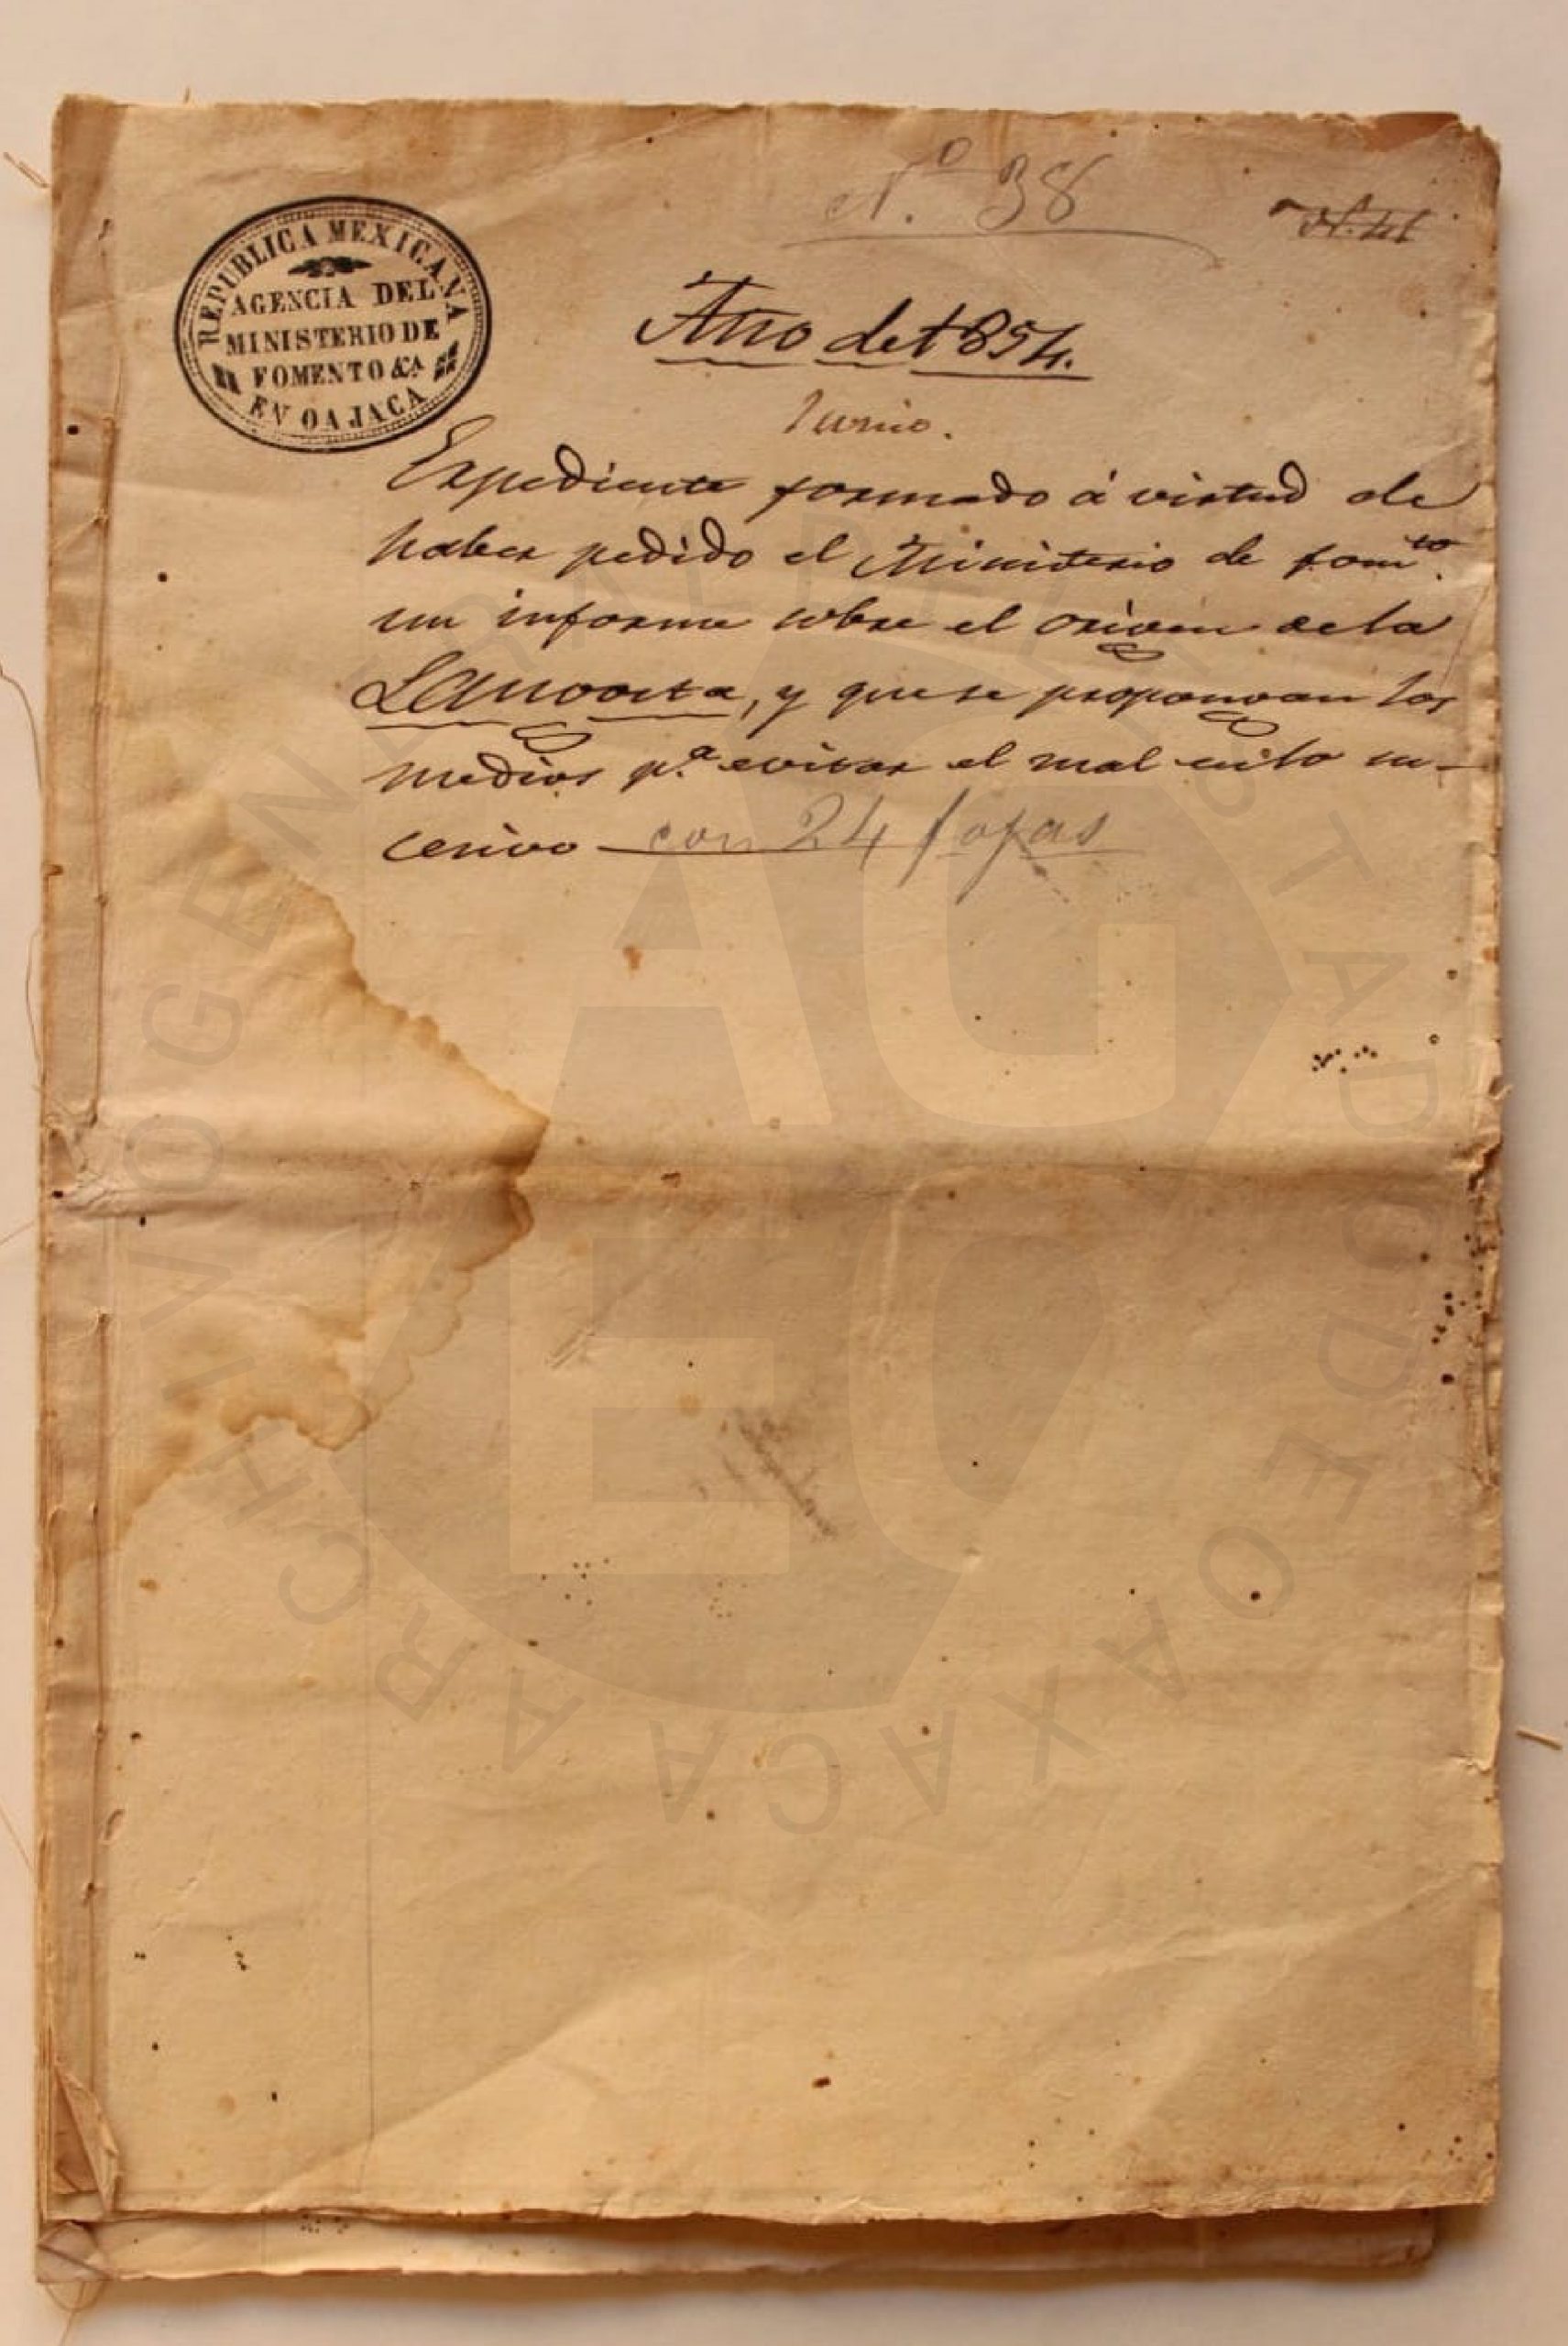 Nº 38
N. 41
REPUBLICA MEXICANA
AGENCIA DEL
MINISTERIO DE
FOMENTO &A
EN OAJACA
Año de 1854.
Junio.
Expediente formado á virtud de
haber pedido el Ministerio de fomto.
un informe sobre el origen de la
Langosta, y que se propongan los
medios p.a evitar el mal en lo su-
cesivo con 24 fojas
ARCHIVO GENERAL DEL ESTADO DE OAXACA
AG
EO